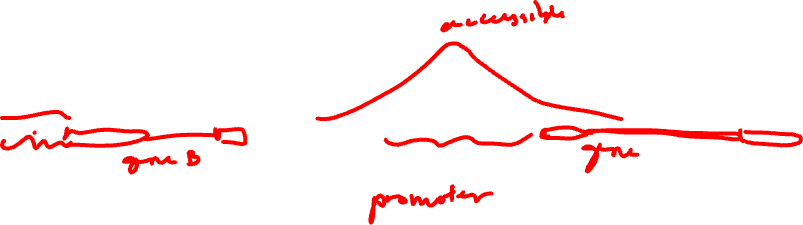 accessible
gene B
gene
promoter